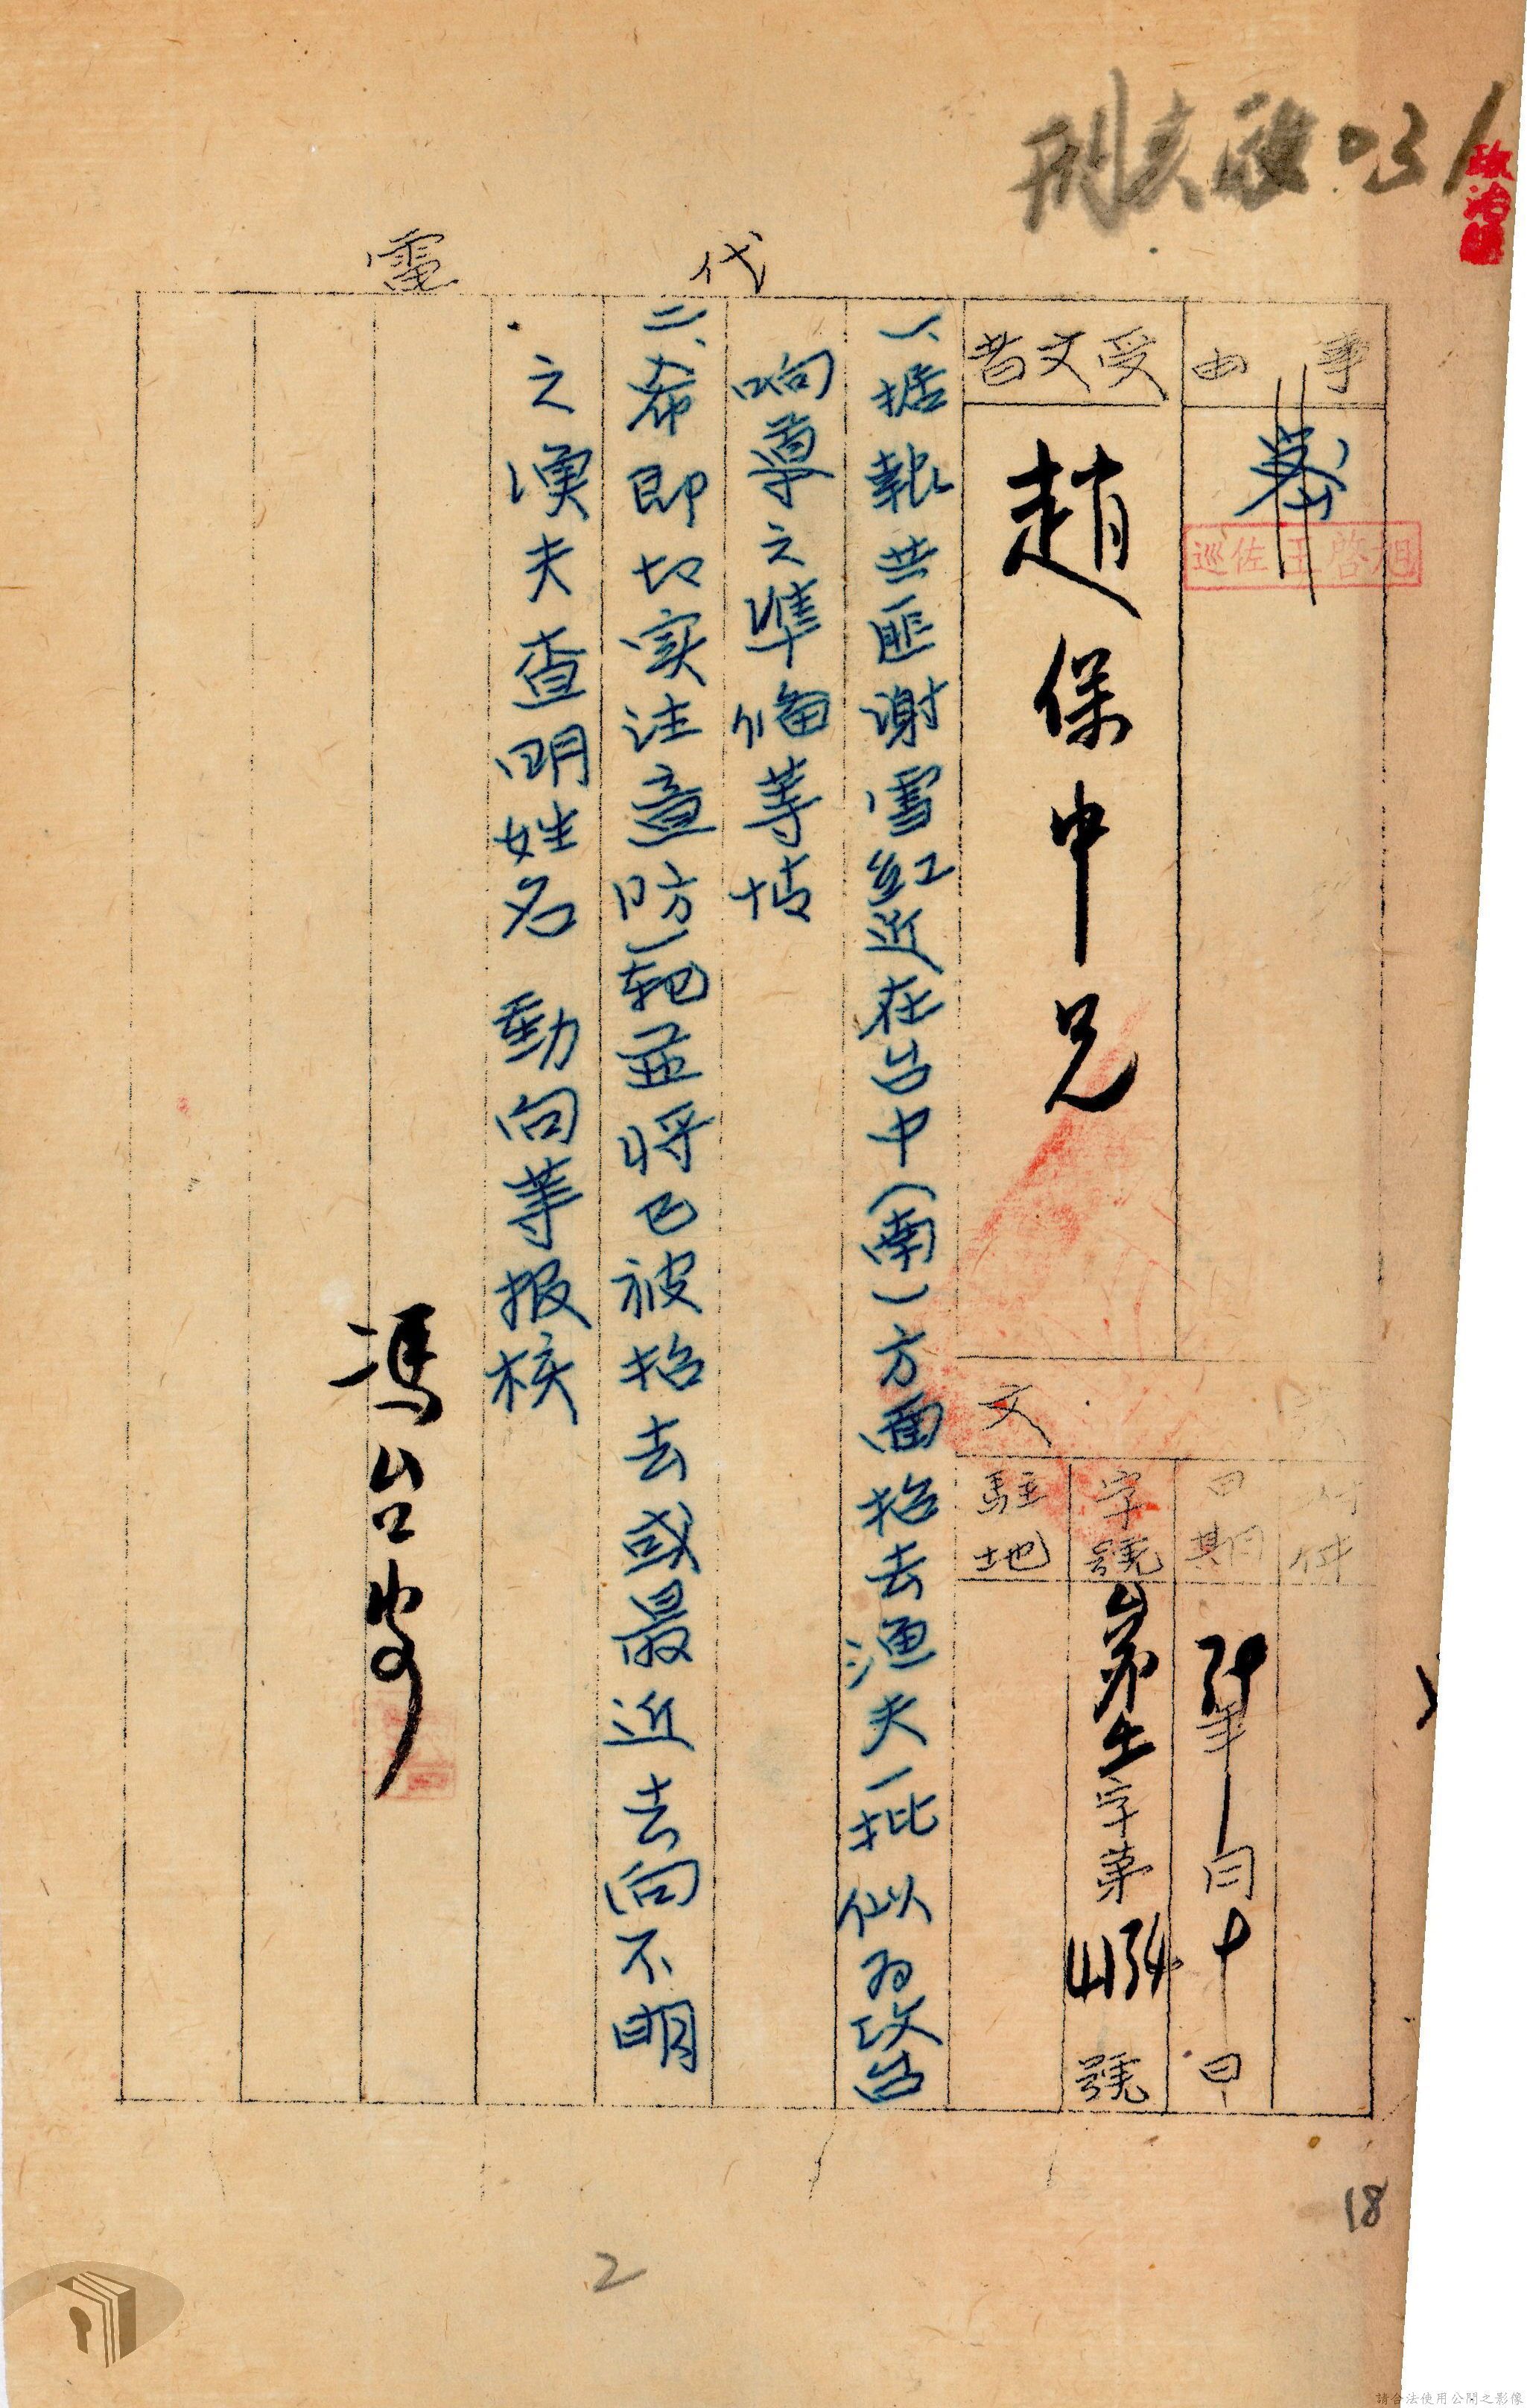 031
政治
代電
事由
巡佐王啓旭
受文者
趙保中兄
文
附件
日期
39年 月十日
字號
字第 4134 號
駐地
一、据報共匪谢雪紅近在台中(南)方面招去漁夫一批似为攻台
响導之準备等情
二、希即切实注意防范並將已被招去或最近去向不明
之漁夫查明姓名動向等报核
馮台安
18
2
請合法使用公開之影像